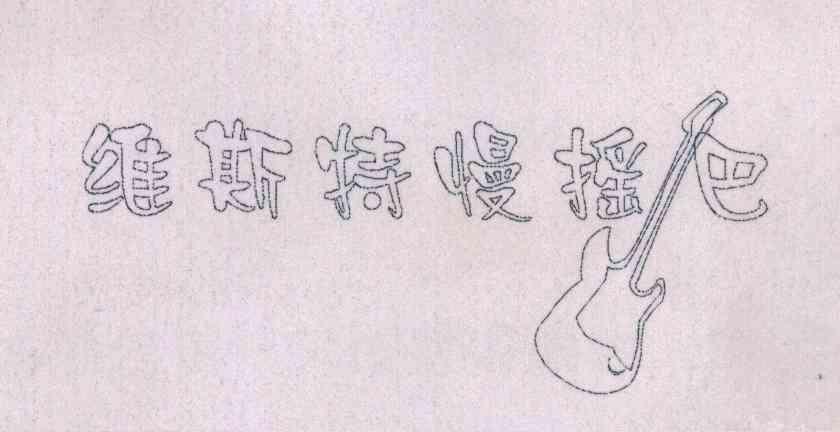 维斯特慢摇巴